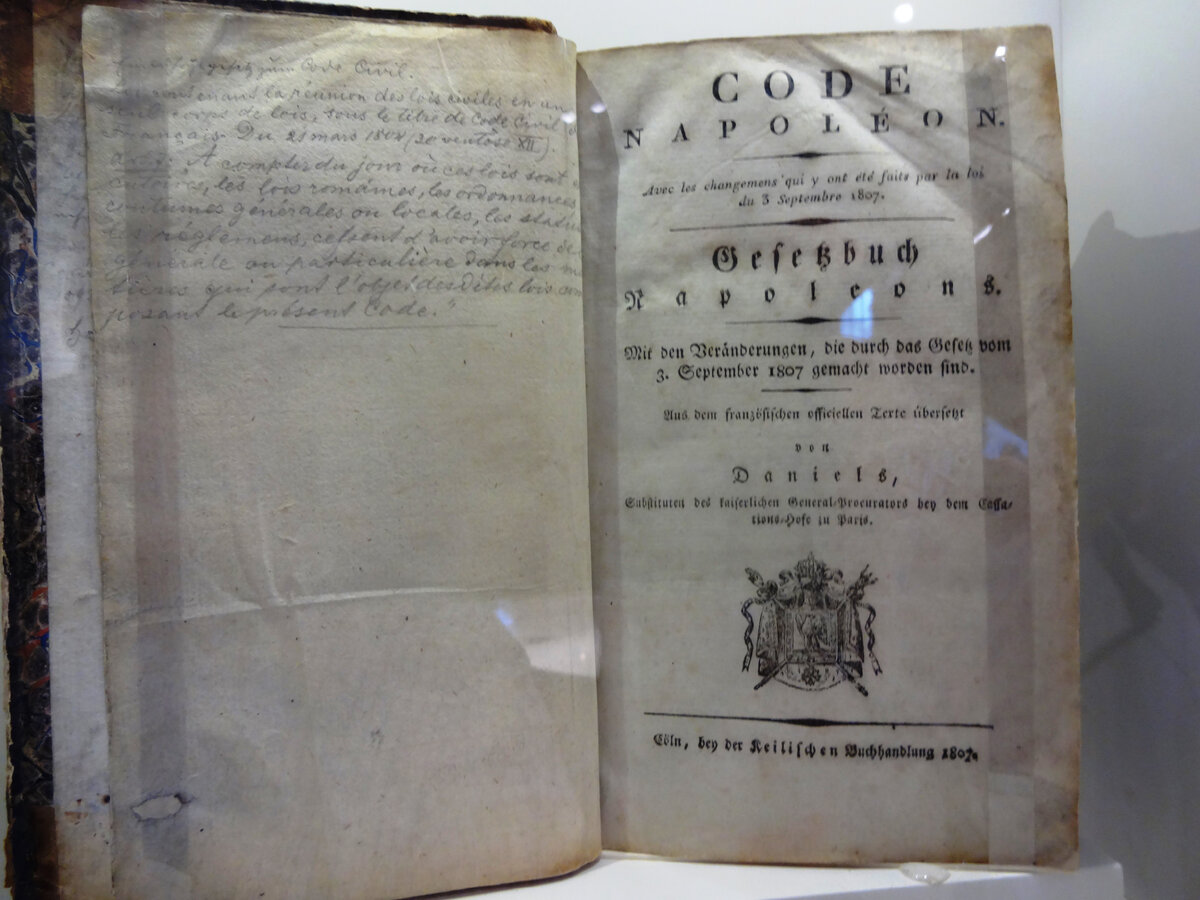 zum Code Civil.
contenant la réunion des lois civiles en un
seul corps de lois, sous le titre de Code Civil
Français. Du 21 mars 1804 (30 ventôse XII).
A compter du jour où ces lois sont
les lois romaines, les ordonnances
coutumes générales ou locales, les statuts
les réglemens, cessent d'avoir force de
générale ou particulière dans les ma
tières qui sont l'objet des dites lois com
posant le présent Code."
CODE
NAPOLÉON.
Avec les changemens qui y ont été faits par la loi
du 3 Septembre 1807.
Gesetzbuch
Napoleons.
Mit den Veränderungen, die durch das Gesetz vom
3. September 1807 gemacht worden sind.
Aus dem französischen officiellen Texte übersetzt
von
Daniels,
Substituten des kaiserlichen General-Procurators bey dem Cassa-
tions-Hofe zu Paris.
Cöln, bey der Keilischen Buchhandlung 1807.